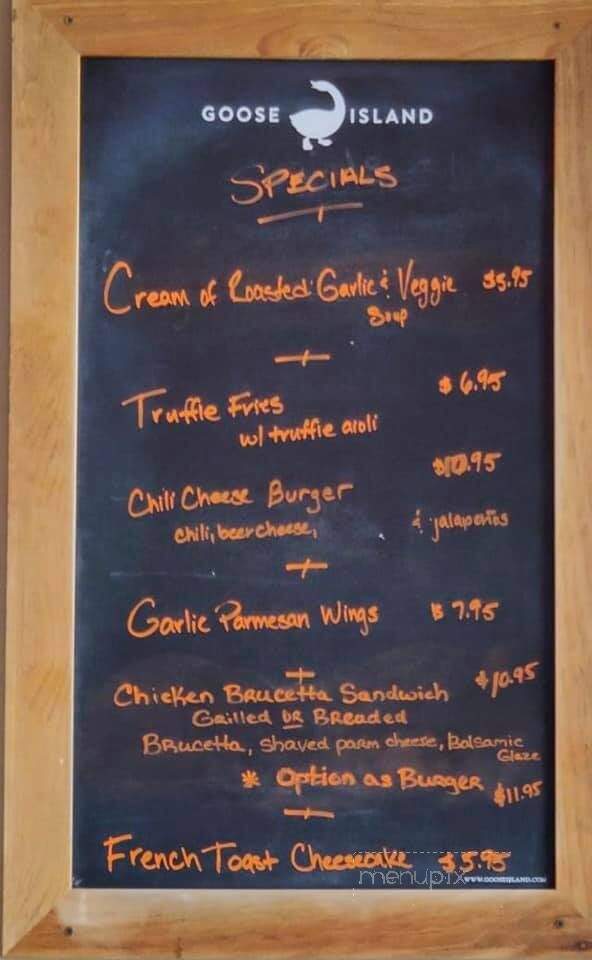 GOOSE ISLAND
SPECIALS
Cream of Roasted Garlic & Veggie $5.95
Soup
$6.95
Truffle Fries
w/ truffle aioli
$10.95
Chili Cheese Burger
chili, beer cheese, & jalapeños
Garlic Parmesan Wings $7.95
Chicken Brucetta Sandwich $10.95
Grilled OR Breaded
Brucetta, shaved parm cheese, Balsamic
Glaze
* Option as Burger $11.95
French Toast Cheesecake $5.95
menupix
WWW.GOOSEISLAND.COM